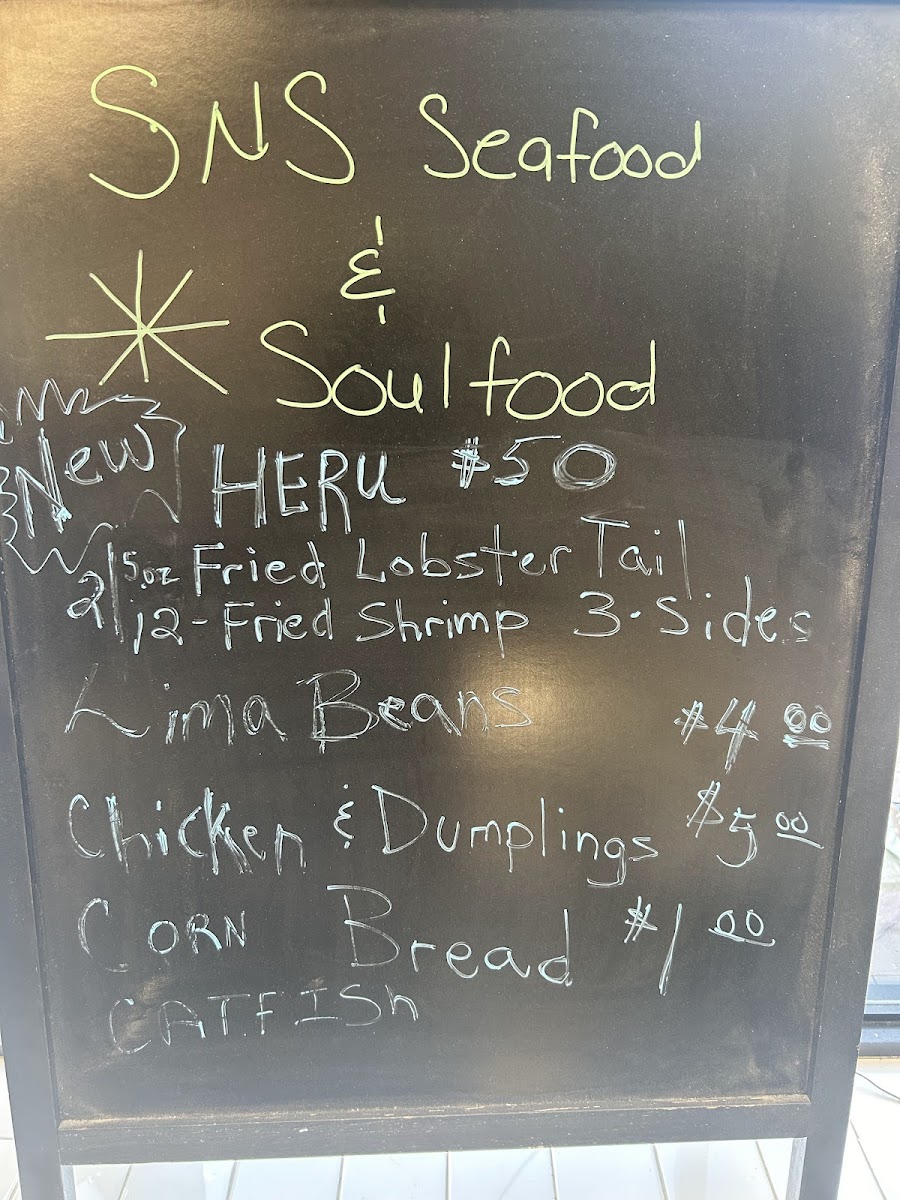 SNS Seafood
&
Soulfood
New HERU $50
2/5.oz Fried Lobster Tail
12-Fried Shrimp 3-Sides
Lima Beans $4.00
Chicken & Dumplings $5.00
CORN Bread $1.00
CATFISh